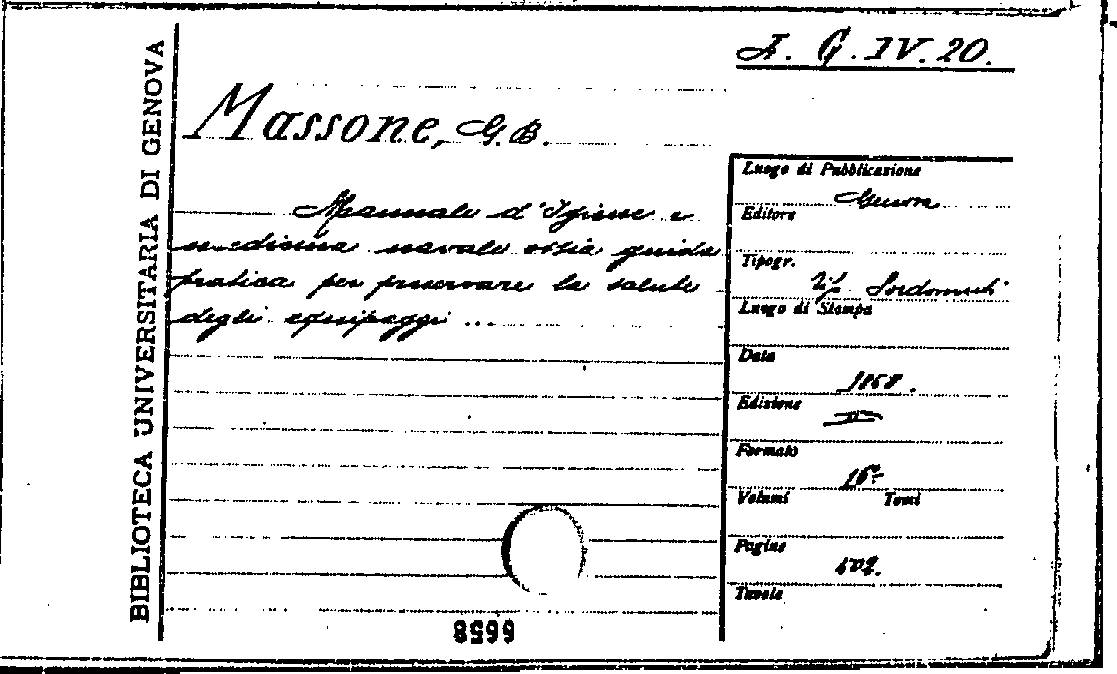 F. G. IV. 20.
BIBLIOTECA UNIVERSITARIA DI GENOVA
Massone, G.B.
Manuale d'Igiene e
medicina navale ossia guida
pratica per preservare la salute
degli equipaggi ...
Luogo di Pubblicazione
Genova
Editore
Tipogr.
Tip. Sordomuti
Luogo di Stampa
Data
1868.
Edizione
II
Formato
16º
Volumi Tomi
Pagine
Tavole
6658